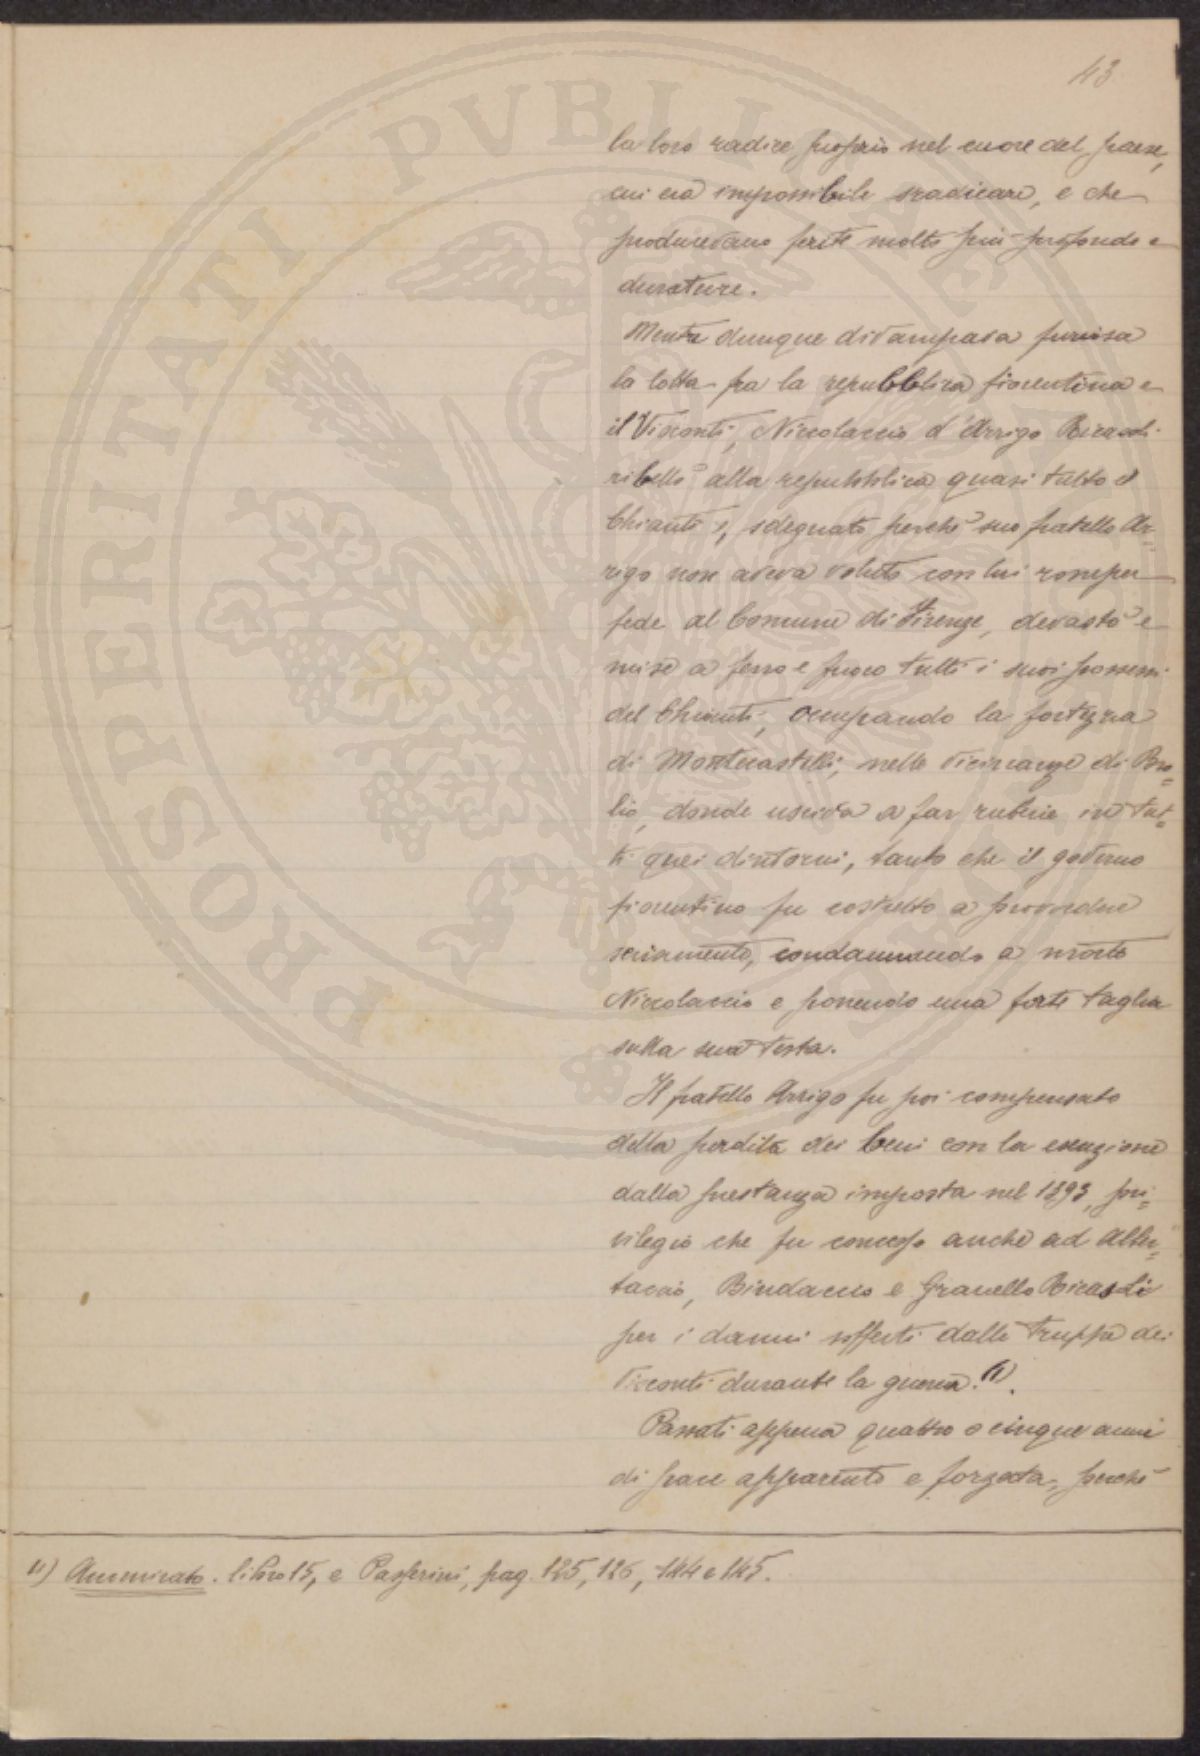 43
la loro radice proprio nel cuore del paese,
cui era impossibile sradicare, e che
producevano ferite molto più profonde e
durature.
Mentre dunque divampava furiosa
la lotta fra la repubblica fiorentina e
il Visconti, Niccolaccio d'Arrigo Ricasoli
ribellò alla repubblica quasi tutto il
Chianti e, sdegnato perchè suo fratello Ar=
rigo non aveva voluto con lui romper
fede al Comune di Firenze, devastò e
mise a ferro e fuoco tutti i suoi possessi
del Chianti, occupando la fortezza
di Montecastelli, nelle vicinanze di Bro=
lio, donde usciva a far ruberie in tut=
ti quei dintorni, tanto che il governo
fiorentino fu costretto a provvedere
seriamente, condannando a morte
Niccolaccio e ponendo una forte taglia
sulla sua testa.
Il fratello Arrigo fu poi compensato
della perdita dei beni con la esenzione
dalla prestanza imposta nel 1393, pri=
vilegio che fu concesso anche ad Alber=
taccio, Bindaccio e Granello Ricasoli
per i danni sofferti dalle truppe dei
Visconti durante la guerra. (1).
Passati appena quattro o cinque anni
di pace apparente e forzata, perchè
1) Ammirato. libro 15, e Passerini, pag. 125, 126, 144 e 145.
PROSPERITATI PVBLICAE AVGENDAE